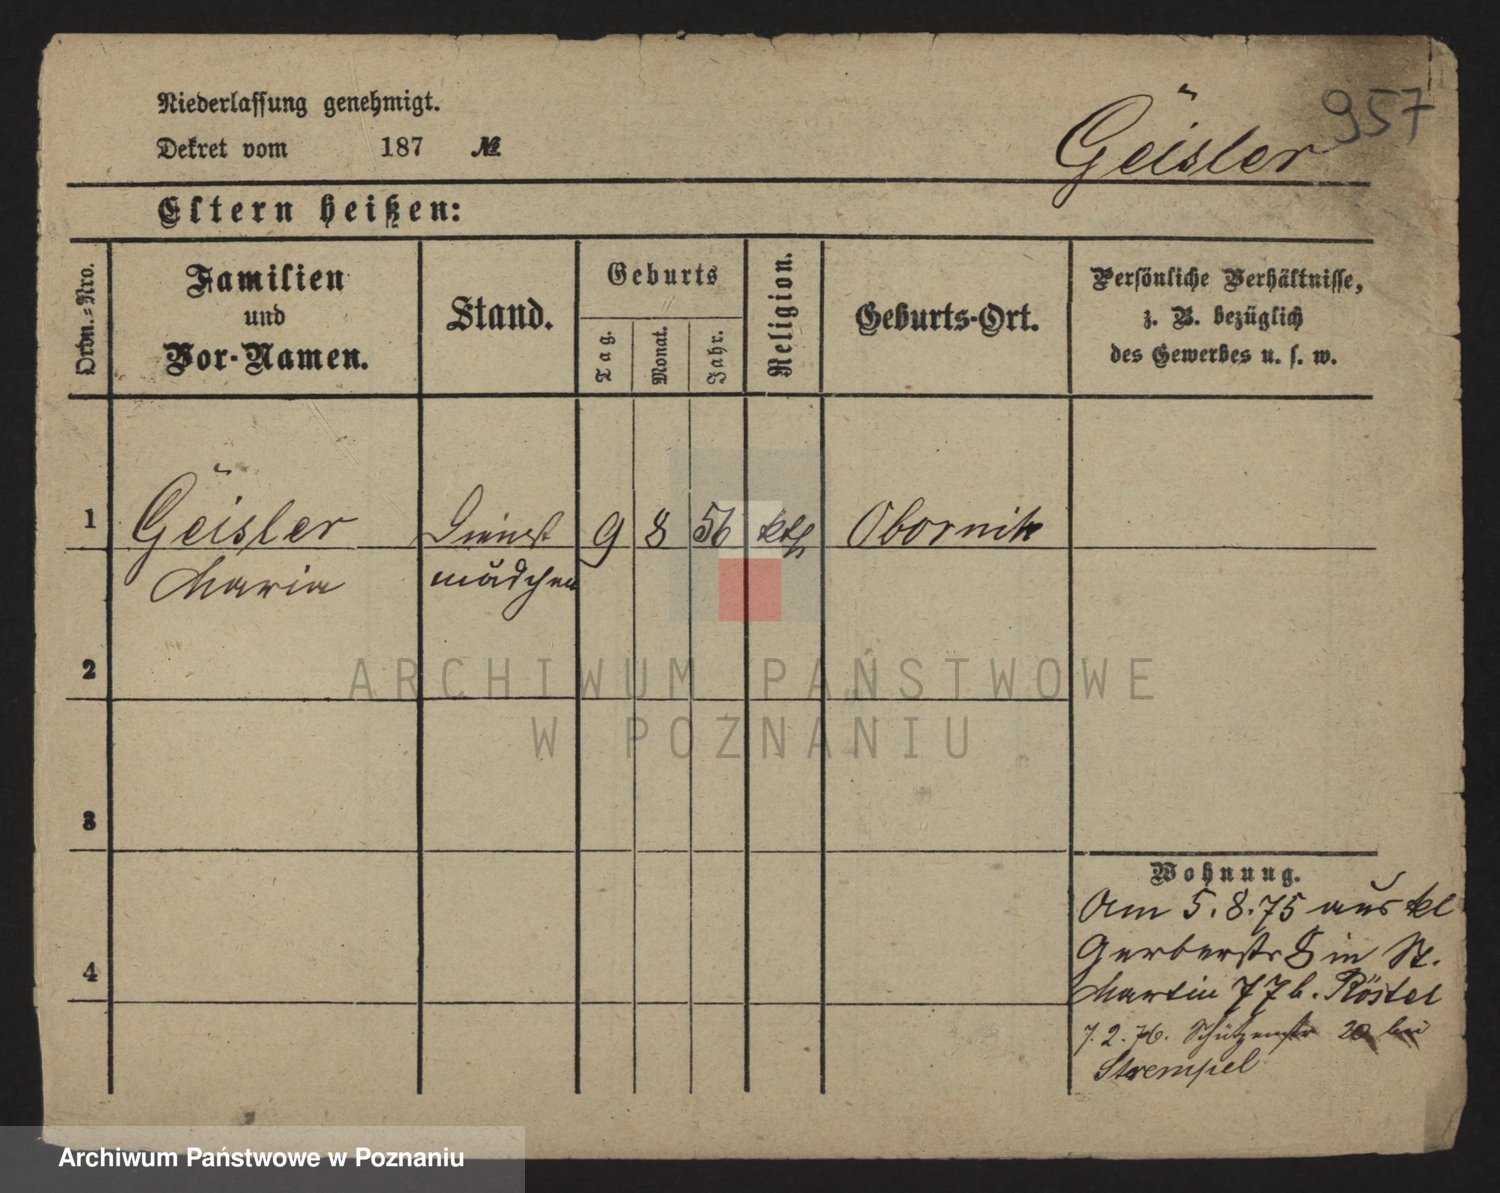 957
Niederlassung genehmigt.
Dekret vom 187 №
Geisler
Eltern heißen:
Ordn.-Nro.
Familien
und
Vor-Namen.
Stand.
Geburts
Tag.
Monat.
Jahr.
Religion.
Geburts-Ort.
Persönliche Verhältnisse,
z. B. bezüglich
des Gewerbes u. s. w.
1 Geisler Dienst 9 8 56 kth Obornik
Maria mädchen
2
ARCHIWUM PAŃSTWOWE
W POZNANIU
3
4
Wohnung.
Am 5.8.75 aus kl
Gerberstr 8 in St.
Martin 77 b. Röstel
7.2.76. Schützenstr 20 bei
Strempel
Archiwum Państwowe w Poznaniu